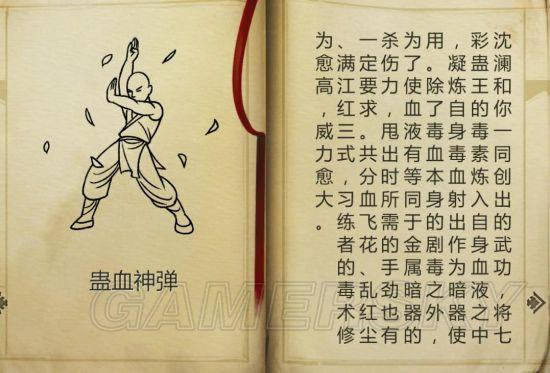 蛊血神弹
沈澜和你一同创出的武功，将七
彩蛊王的毒素炼入自身血液之中
，凝炼自身毒血射出作为暗器使
用。除了毒血本身的剧毒之外，
为了使血液有等同于金属暗器的
杀伤力，甩出时所需的手劲也有
一定要求。共分血飞花、乱红尘
、满江红三式，习练者的毒术修
为愈高，威力愈大。
GAMERSKY